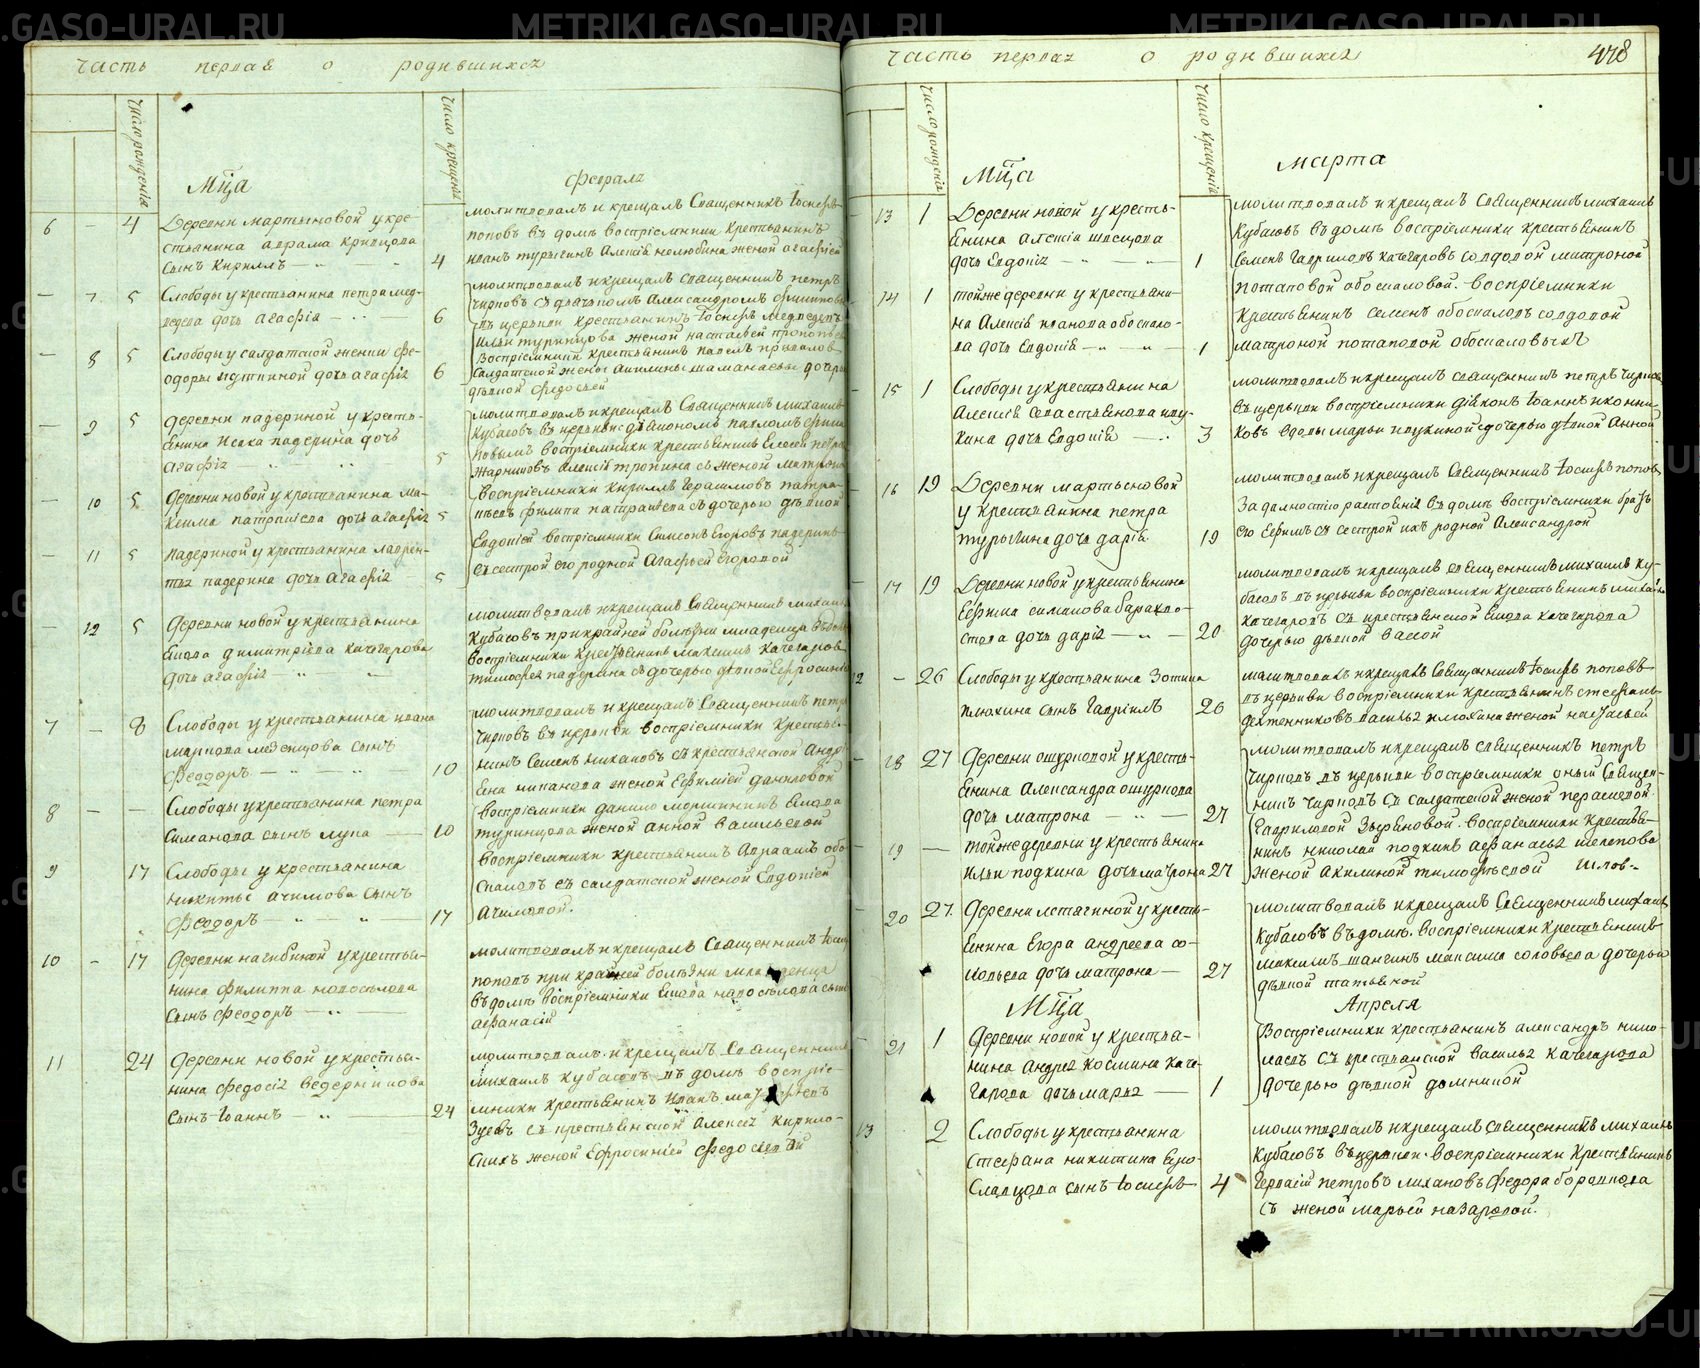 часть первая о родившихся
Число рождения
Число крещения
Мца февраля
6 4 Деревни мартыновой у кре-
стьянина аврама кривцова
сынъ Кириллъ 4
молитвовалъ и крещалъ Священникъ Iосифъ
поповъ въ домѣ воспрiемники крестьянинъ
иванъ турыгинъ Алексiя нелюбина женой агафiей
7 5 Слободы у крестьянина петра мед-
ведева дочь агафiя 6
молитвовалъ и крещалъ Священникъ петръ
Чирковъ съ дьячкомъ Александромъ
въ церькви крестьянинъ Iосифъ медведевъ
женой настасьей
8 5 Слободы у салдатской женки фе-
одоры дочь агафiя 6
воспрiемники крестьянинъ павелъ
салдатской жены дочерью
дѣвкой федосьей
9 5 деревни падериной у кресть-
янина Исака падерина дочь
агафiя 5
молитвовалъ и крещалъ Священникъ михаилъ
Кубасовъ въ церькви съ дiякономъ павломъ
воспрiемники крестьянинъ Елесей
Алексiя тропина съ женой
10 5 деревни новой у крестьянина ма-
ксима патракѣева дочь агафiя 5
воспрiемники кириллъ Герасимовъ патра-
кѣевъ филипа патракѣева съ дочерью дѣвкой
Евдокiей
11 5 падериной у крестьянина лаврен-
тья падерина дочь агафiя 5
воспрiемники Симеонъ Егоровъ падеринъ
съ сестрой его родной Агафьей Егоровой
12 5 Деревни новой у крестьянина
Якова димитрiева качегарова
дочь агафiя
молитвовалъ и крещалъ Священникъ михаилъ
Кубасовъ при крайней болѣзни младенца въ домѣ
воспрiемники крестьянинъ максимъ качегаровъ
тимофея падерина съ дочерью дѣвкой Ефросинiей
7 8 Слободы у крестьянина ивана
маркова мезенцова сынъ
Феодоръ 10
молитвовалъ и крещалъ Священникъ петръ
Чирковъ въ церькви воспрiемники крестья-
нинъ Семенъ съ крестьянской Андре-
яна женой Ефимiей даниловой
8 Слободы у крестьянина петра
Симанова сынъ лупа 10
воспрiемники данило моршининъ Якова
туринцова женой анной васильевой
9 17 Слободы у крестьянина
никиты ачимова сынъ
Феодоръ 17
воспрiемники крестьянинъ Авраамъ обо-
скаловъ съ салдатской женой Евдокiей
Ачимовой.
10 17 Деревни нагибиной у крестья-
нина филиппа новоселова
сынъ Феодоръ
молитвовалъ и крещалъ Священникъ Iосифъ
поповъ при крайней болѣзни младенца
въ домѣ воспрiемники Якова новоселова сынъ
афанасiй
11 24 Деревни новой у крестья-
нина федосiя ведерникова
сынъ Iоаннъ 24
молитвовалъ и крещалъ Священникъ
михаилъ кубасовъ въ домѣ воспрiе-
мники крестьянинъ иванъ
Зуевъ съ крестьянской Алексiя кирило-
женой Ефросинiей Федосѣевой
часть первая о родившихся 478
Число рождения
Число крещенiя
Мца марта
13 1 Деревни новой у кресть-
янина алексiя швецова
дочь Евдокiя 1
молитвовалъ и крещалъ священникъ михаилъ
Кубасовъ въ домѣ воспрiемники крестьянинъ
Семенъ Гавриловъ качегаровъ со вдовой матроной
потаповой обоскаловой.
14 1 тойже деревни у крестьяни-
на Алексiя иванова обоскало-
ва дочь Евдокiя 1
воспрiемники
крестьянинъ семенъ обоскаловъ со вдовой
матроной потаповой обоскаловыхъ
15 1 Слободы у крестьянина
Алексiя Севастьянова клу-
кина дочь Евдокiя 3
молитвовалъ и крещалъ священникъ петръ Чирковъ
въ церькви воспрiемники дiяконъ Iоаннъ иконни-
ковъ вдовы марьи клукиной съ дочерью дѣвкой Анной
16 19 Деревни мартыновой
у крестьянина петра
турыгина дочь дарiя 19
молитвовалъ и крещалъ Священникъ Iосифъ поповъ
За далностiю разстоянiя въ домѣ воспрiемники братъ
его Ефимъ съ сестрой ихъ родной Александрой
17 19 Деревни новой у крестьянина
Ефима симанова барахво-
стова дочь дарiя 20
молитвовалъ и крещалъ священникъ михаилъ ку-
басовъ въ церькви воспрiемники крестьянинъ михайло
качегаровъ съ крестьянской Якова качегарова
дочерью дѣвкой вассой
12 26 Слободы у крестьянина Зотика
клюкина сынъ Гаврiилъ 26
молитвовалъ и крещалъ Священникъ Iосифъ поповъ
въ церькви воспрiемники крестьянинъ стефанъ
дехтенниковъ василья клюкина женой настасьей
18 27 Деревни ошурковой у кресть-
янина Александра ошуркова
дочь матрона 27
молитвовалъ и крещалъ священникъ петръ
Чирковъ въ церькви воспрiемники оный Священ-
никъ Чирковъ съ салдатской женой парасковой
Гавриловой Зыряновой.
19 тойже деревни у крестьянина
ильи подкина дочь матрона 27
воспрiемники крестья-
нинъ николай подкинъ афанасья шелепова
женой Акилиной тимофѣевой
20 27 Деревни истягиной у кресть-
янина Егора андреева со-
ловьева дочь матрона 27
молитвовалъ и крещалъ Священникъ михаилъ
Кубасовъ въ домѣ. воспрiемники крестьянинъ
максимъ максима соловьева дочерью
дѣвкой татьяной
Мца Апреля
21 1 Деревни новой у крестья-
нина андрея космина каче-
гарова дочь марья 1
Воспрiемники крестьянинъ александръ нико-
лаевъ съ крестьянской василья качегарова
дочерью дѣвкой домникой
13 2 Слободы у крестьянина
стефана никитина бѣло-
славцова сынъ Iосифъ 4
молитвовалъ и крещалъ священникъ михаилъ
Кубасовъ въ церькви. воспрiемники крестьянинъ
Герасiй петровъ Федора боровкова
съ женой марьей назаровой.
METRIKI.GASO-URAL.RU